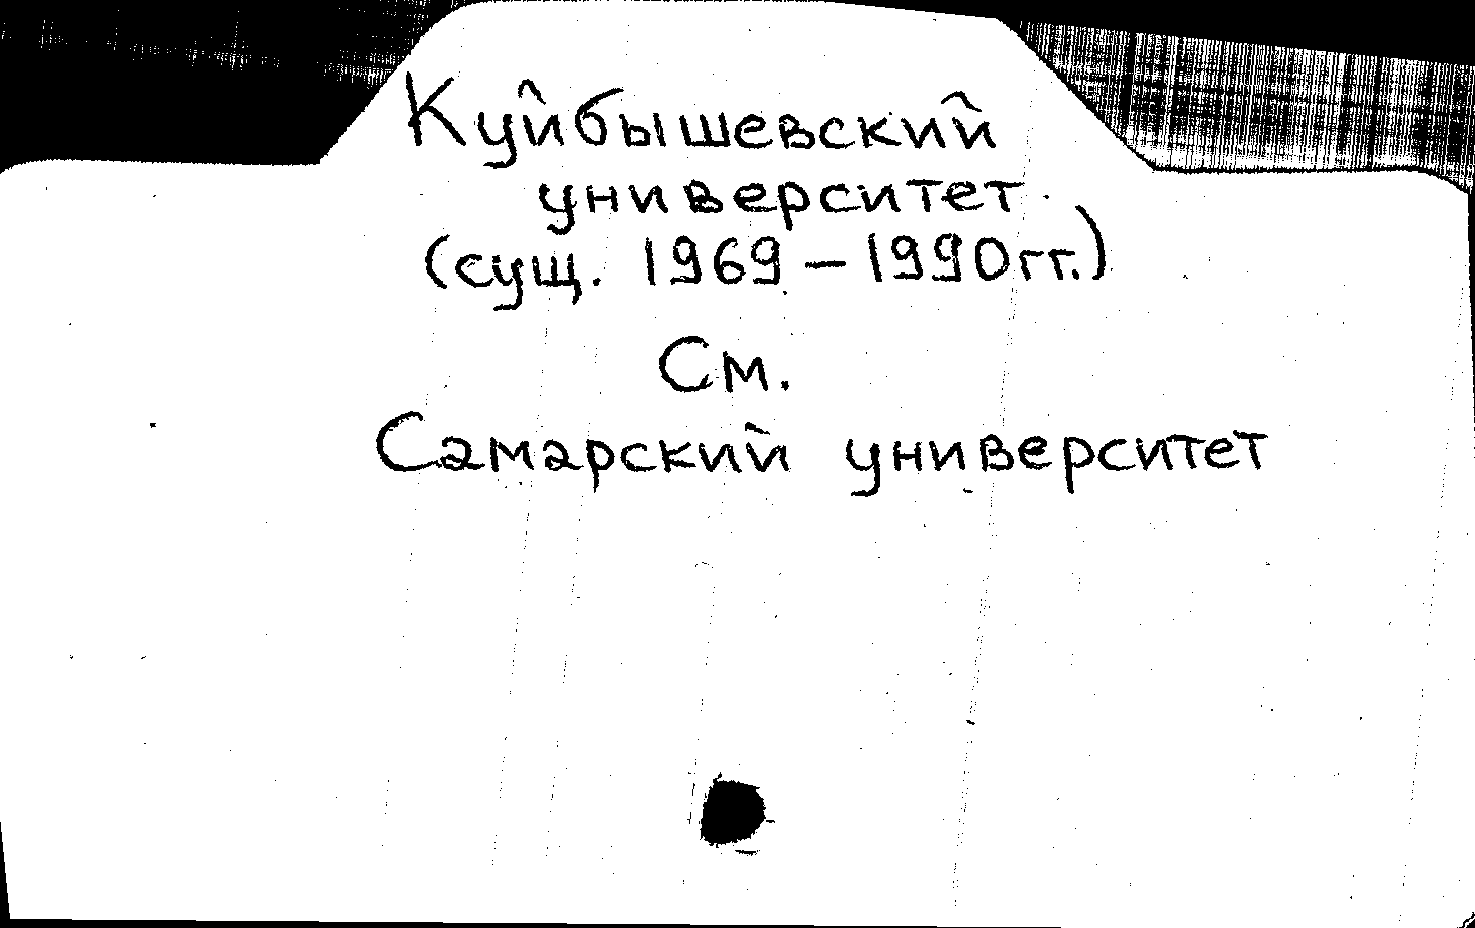 Куйбышевский
университет
(сущ. 1969 – 1990 гг.)
См.
Самарский университет